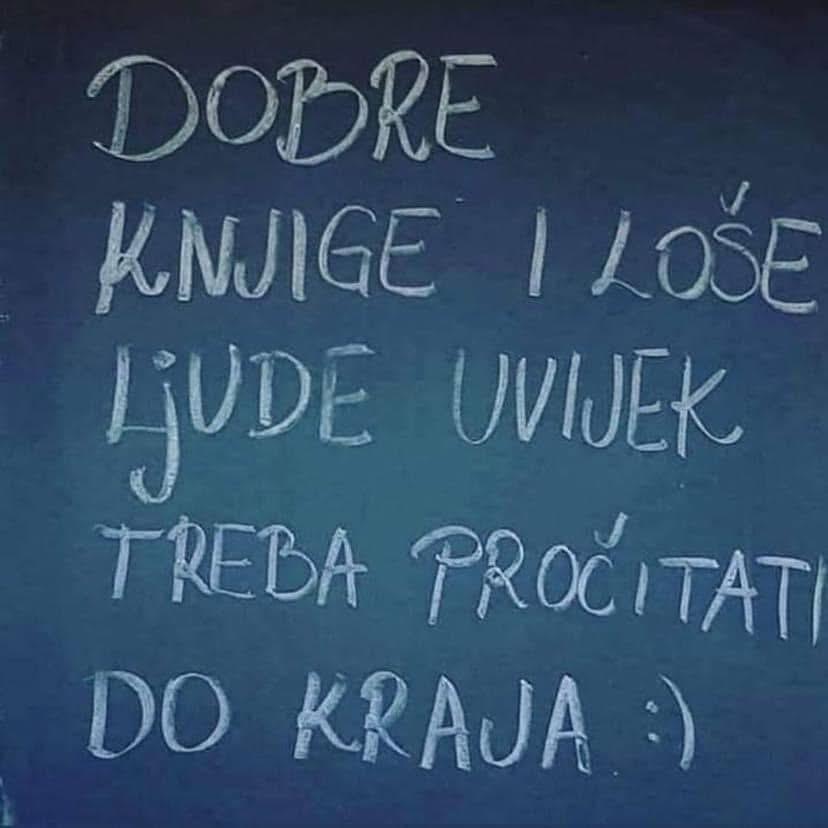 DOBRE
KNJIGE I LOŠE
LjUDE UVIJEK
TREBA PROČITATI
DO KRAJA :)